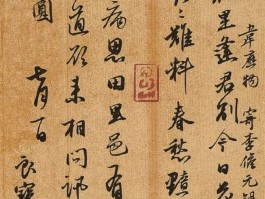 韋應物 寄李儋元錫
里逢君別今日花
々難料春愁黯
病思田里邑有
道欲来相問訊
圓 七月